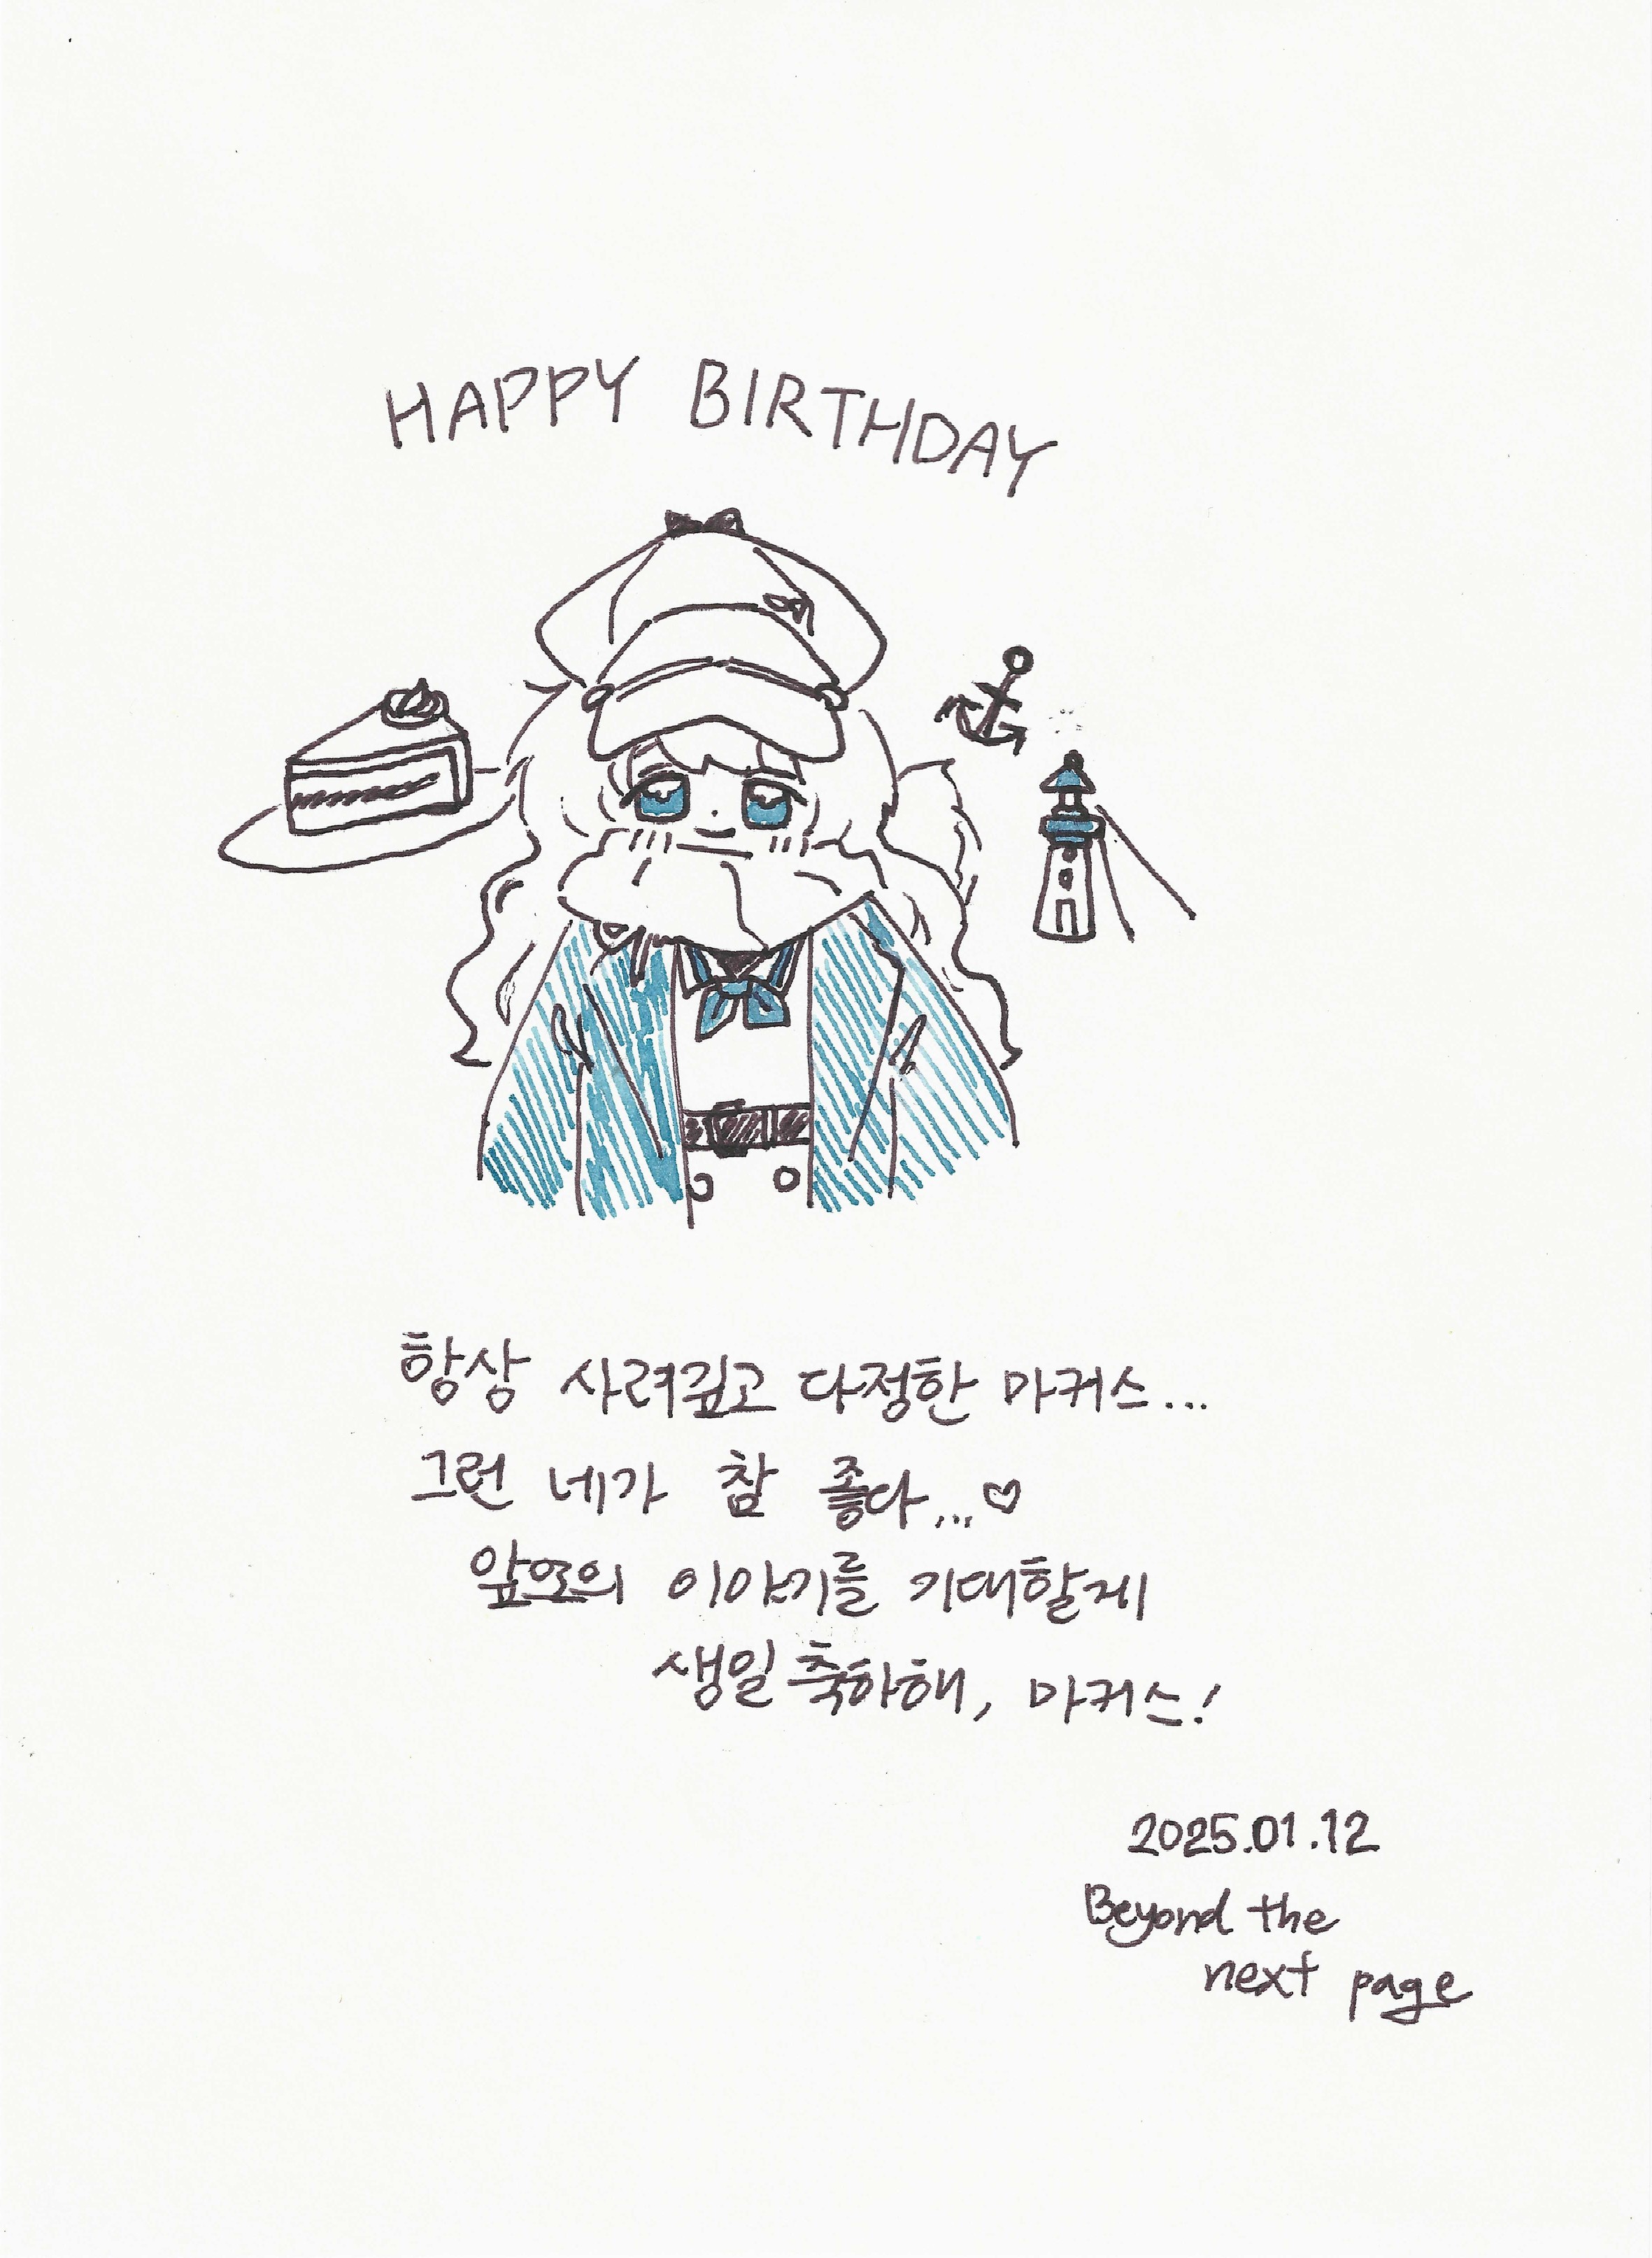 HAPPY BIRTHDAY
항상 사려깊고 다정한 마커스...
그런 네가 참 좋다...♡
앞으로의 이야기를 기대할게
생일 축하해, 마커스!
2025.01.12
Beyond the
next page